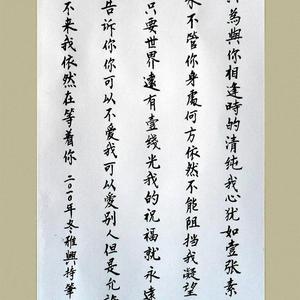 為與你相逢時的清純我心犹如壹张素
不管你身處何方依然不能阻挡我凝望
只要世界還有壹线光我的祝福就永遠
告訴你你可以不爱我可以爱別人但是允許
不来我依然在等着你 二〇二〇年冬雅興持筆